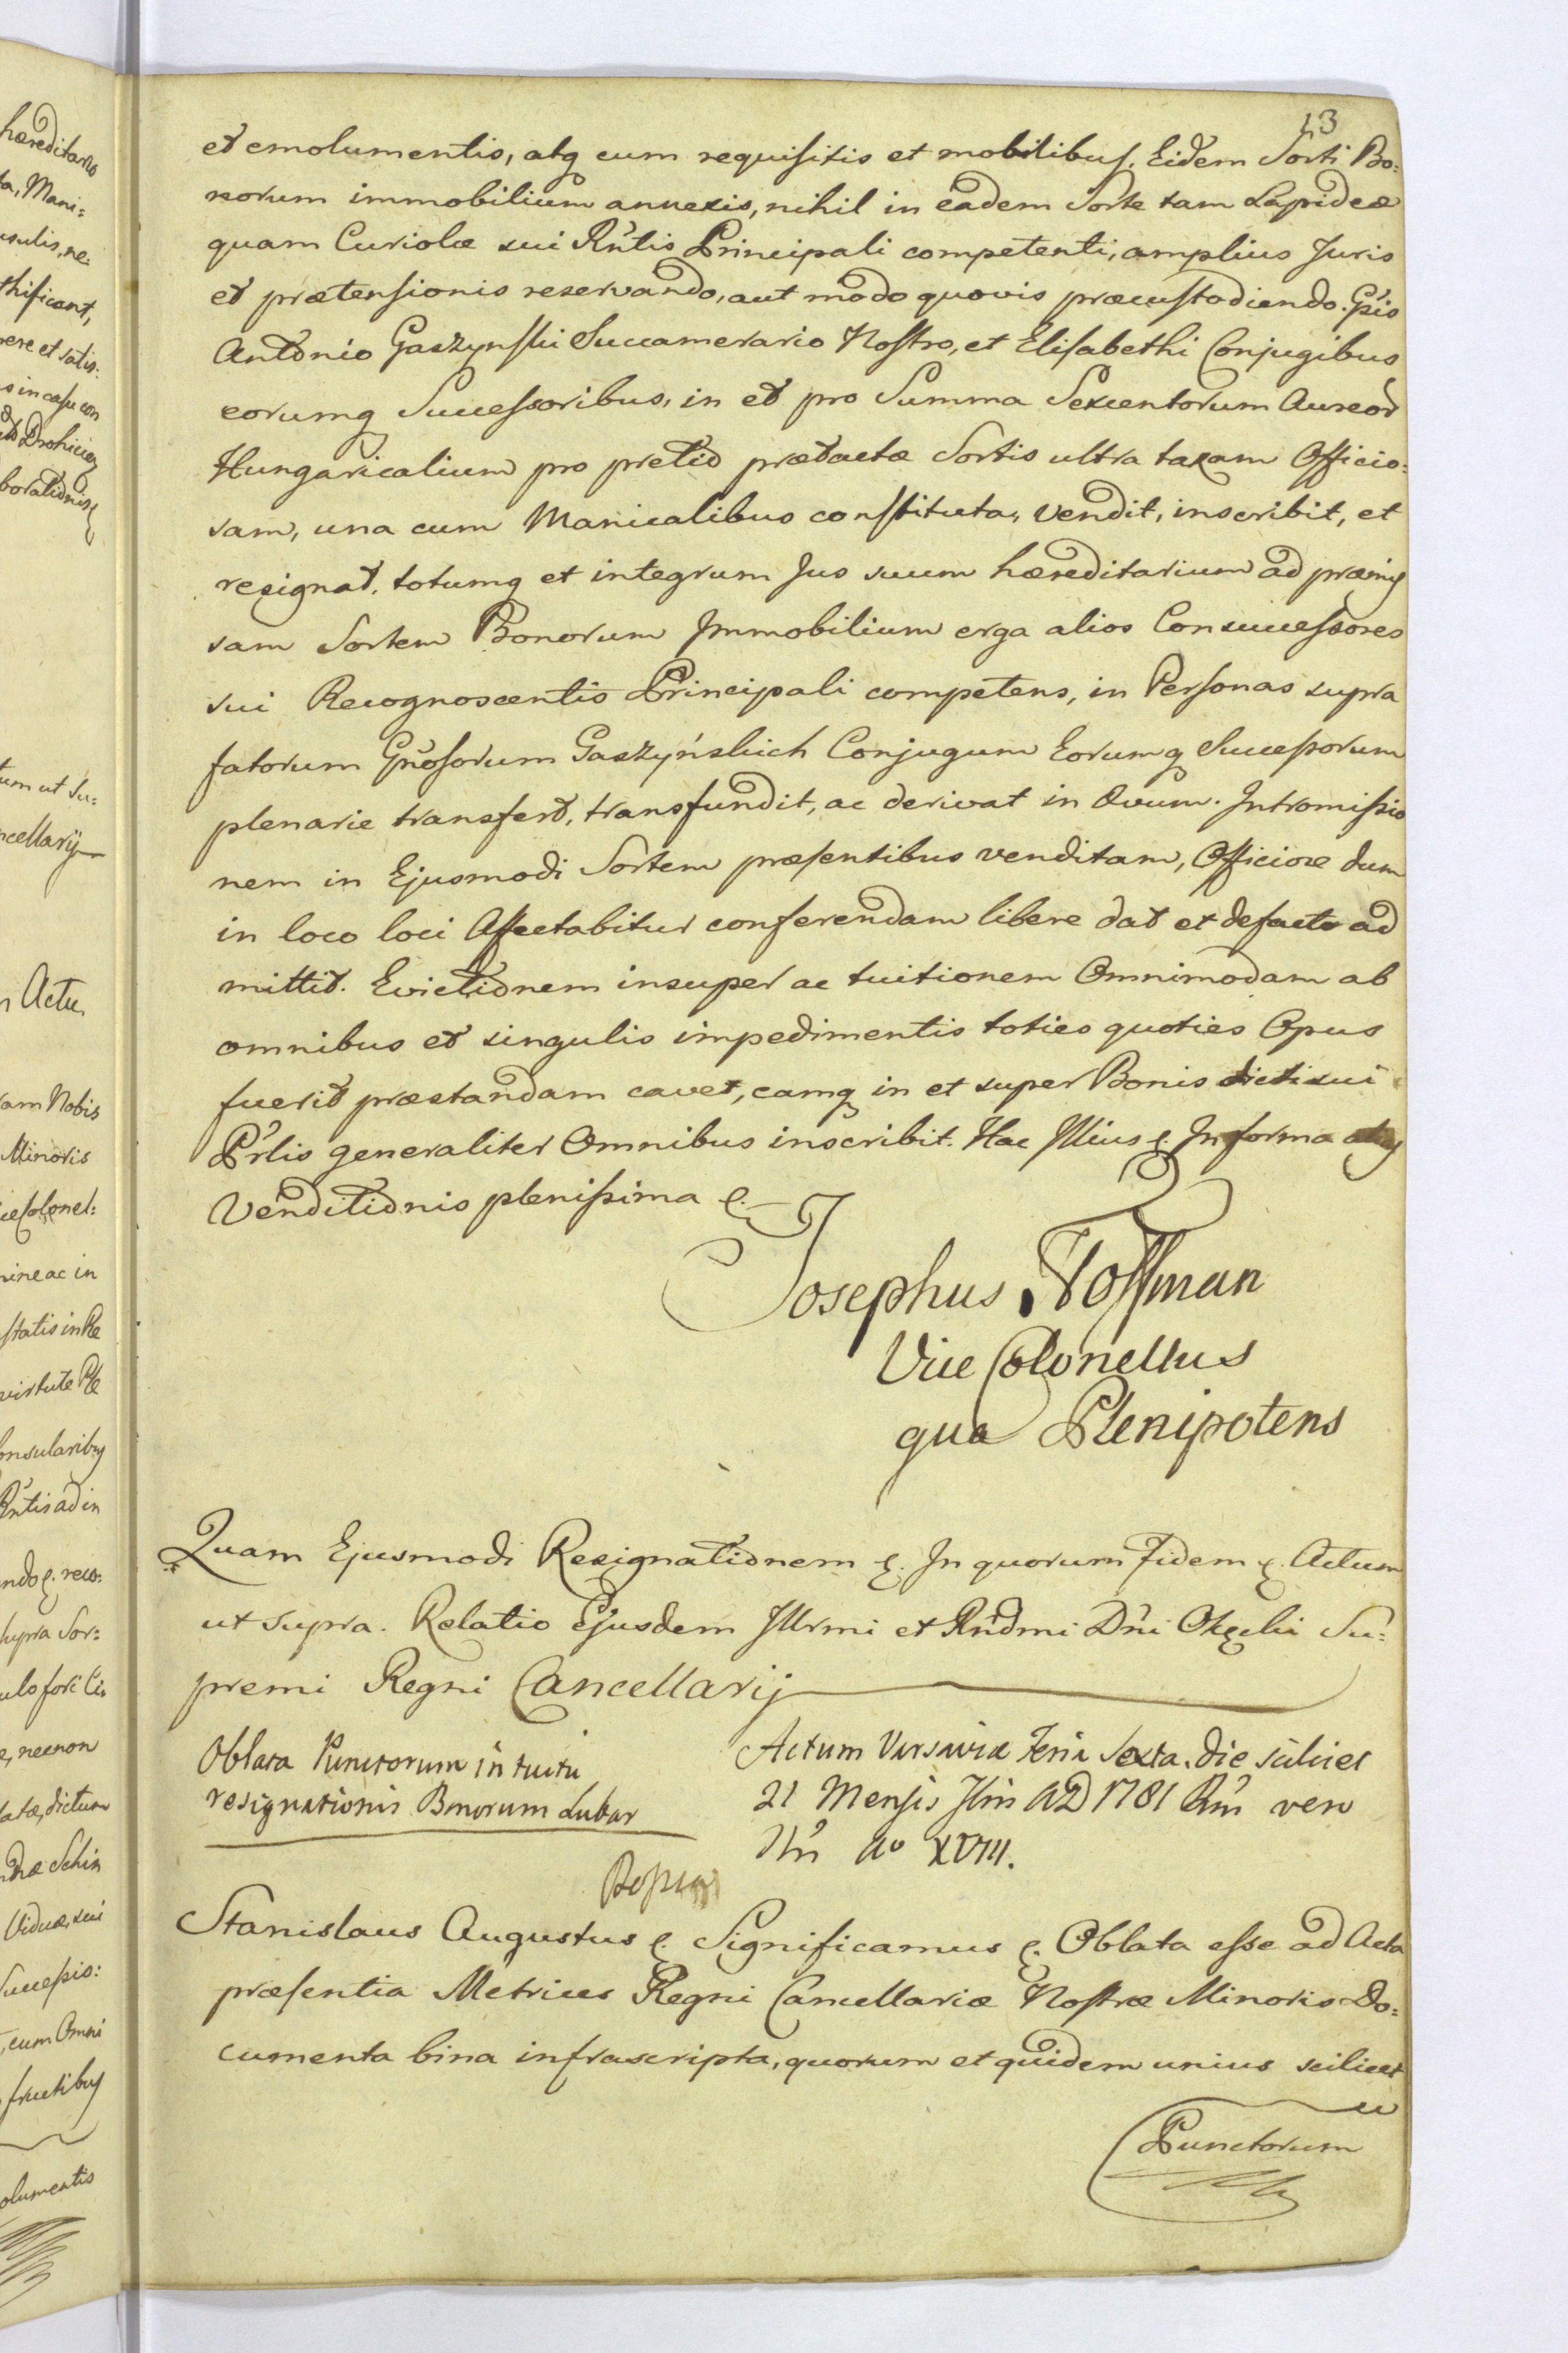 13
et emolumentis, atq cum requisitis et mobilibus, Eidem Sorti Bo:
norum immobilium annexis, nihil in eadem Sorte tam Lapideæ
quam Curiolæ sui Rn̄tis Principali competenti, amplius Juris
et prætensionis reservando, aut modo quovis præcustodiendo. Gs̄is
Antonio Gaszynski Succamerario Nostro, et Elisabethi Conjugibus
eorumq Successoribus, in et pro Summa Sexcentorum Aureor
Hungaricalium pro pretio prætactæ Sortis ultra taxam Officio:
sam, una cum Manicalibus constituta, vendit, inscribit, et
resignat, totumq et integrum Jus suum hæreditarium ad præmis
sam Sortem Bonorum Immobilium erga alios Consuccessores
sui Recognoscentis Principali competens, in Personas supra
fatorum Gn̄osorum Gaszyńskich Conjugum Eorumq Successorum
plenarie transfert, transfundit, ac derivat in Ævum. Intromissio
nem in Ejusmodi Sortem præsentibus venditam, Officiose dum
in loco loci Affectabitur conferendam libere dat et defacto ad
mittit. Evictionem insuper ac tuitionem Omnimodam ab
omnibus et singulis impedimentis toties quoties Opus
fuerit præstandam cavet, eamq in et super Bonis dicti sui
Pr̄lis generaliter Omnibus inscribit. Hac Illius &. In forma
Venditionis plenissima &.
Josephus Hoffman
Vice Colonellus
qua Plenipotens
Quam Ejusmodi Resignationem &. In quorum Fidem &. Actum
ut supra. Relatio Ejusdem Illrmi et Rn̄dmi Dn̄i Okęcki Su:
premi Regni Cancellarij
Oblata Punctorum intuitu
resignationis Bonorum Lubar
Actum Varsaviæ Feria Sexta, die scilicet
21 Mensis AD 1781 Rn̄i vero
Nri Ao XVII.
Stanislaus Augustus &. Significamus &. Oblata esse ad Acta
præsentia Metrices Regni Cancellariæ Nostræ Minoris Do:
cumenta bina infrascripta, quorum et quidem unius scilicet
Punctorum